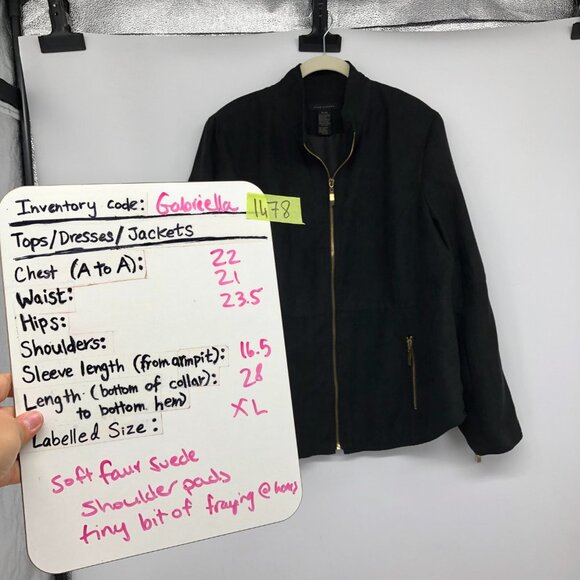 Inventory code: Gabriella 1478
Tops/Dresses/Jackets
Chest (A to A): 22
Waist: 21
Hips: 23.5
Shoulders:
Sleeve length (from armpit): 16.5
Length (bottom of collar): 28
to bottom hem)
Labelled Size: XL
soft faux suede
shoulder pads
tiny bit of fraying @ hems